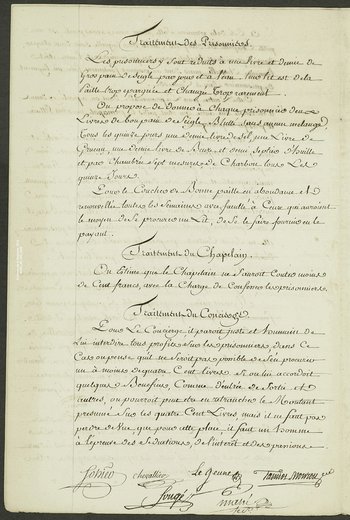 Traitement des Prisonniers.
Les prisonniers y sont reduits à une livre et demie de
Gros pain de Seigle par jour et à l'eau. leur lit est de la
Paille trop epargnée et Changée trop rarement.
On propose de donner à Chaque prisonnier deux
Livres de bon pain de Seigle blutté sans aucun mélange
Tous les quinze jours une demie livre de Sel, une Livre de
Gruau, une demie livre de et demi Septier
et par Chambre Sept mesures de Charbon tous Les
quinze jours.
Pour le Coucher de Bonne paille en abondance et
renouvellée toutes les Semaines avec faculté à Ceux qui auroient
le moyen de se procurer un Lit, de se le faire fournir en le
payant.
Traitement du Chapelain.
On Estime que le Chapelain ne Sauroit Couter moins
de Cent francs, avec la Charge de Confesser les prisonniers.
Traitement du Concierge
Pour Le Concierge il paroit juste et de
Lui interdire tous profits sur les prisonniers, dans Ce
Cas on pense qu'il ne seroit pas possible de s'en procurer
un à moins de quatre Cent livres. Si on lui accordoit
quelques Benefices, Comme d'entrée de Sortie et
autres, on pourroit peut être en retrancher le Montant
presumé Sur les quatre Cent Livres mais il ne faut pas
perdre de Vue, que pour cette place, il faut un homme
à l'épreuve des Séductions, de l'interet et des passions.
chevallier le jeune